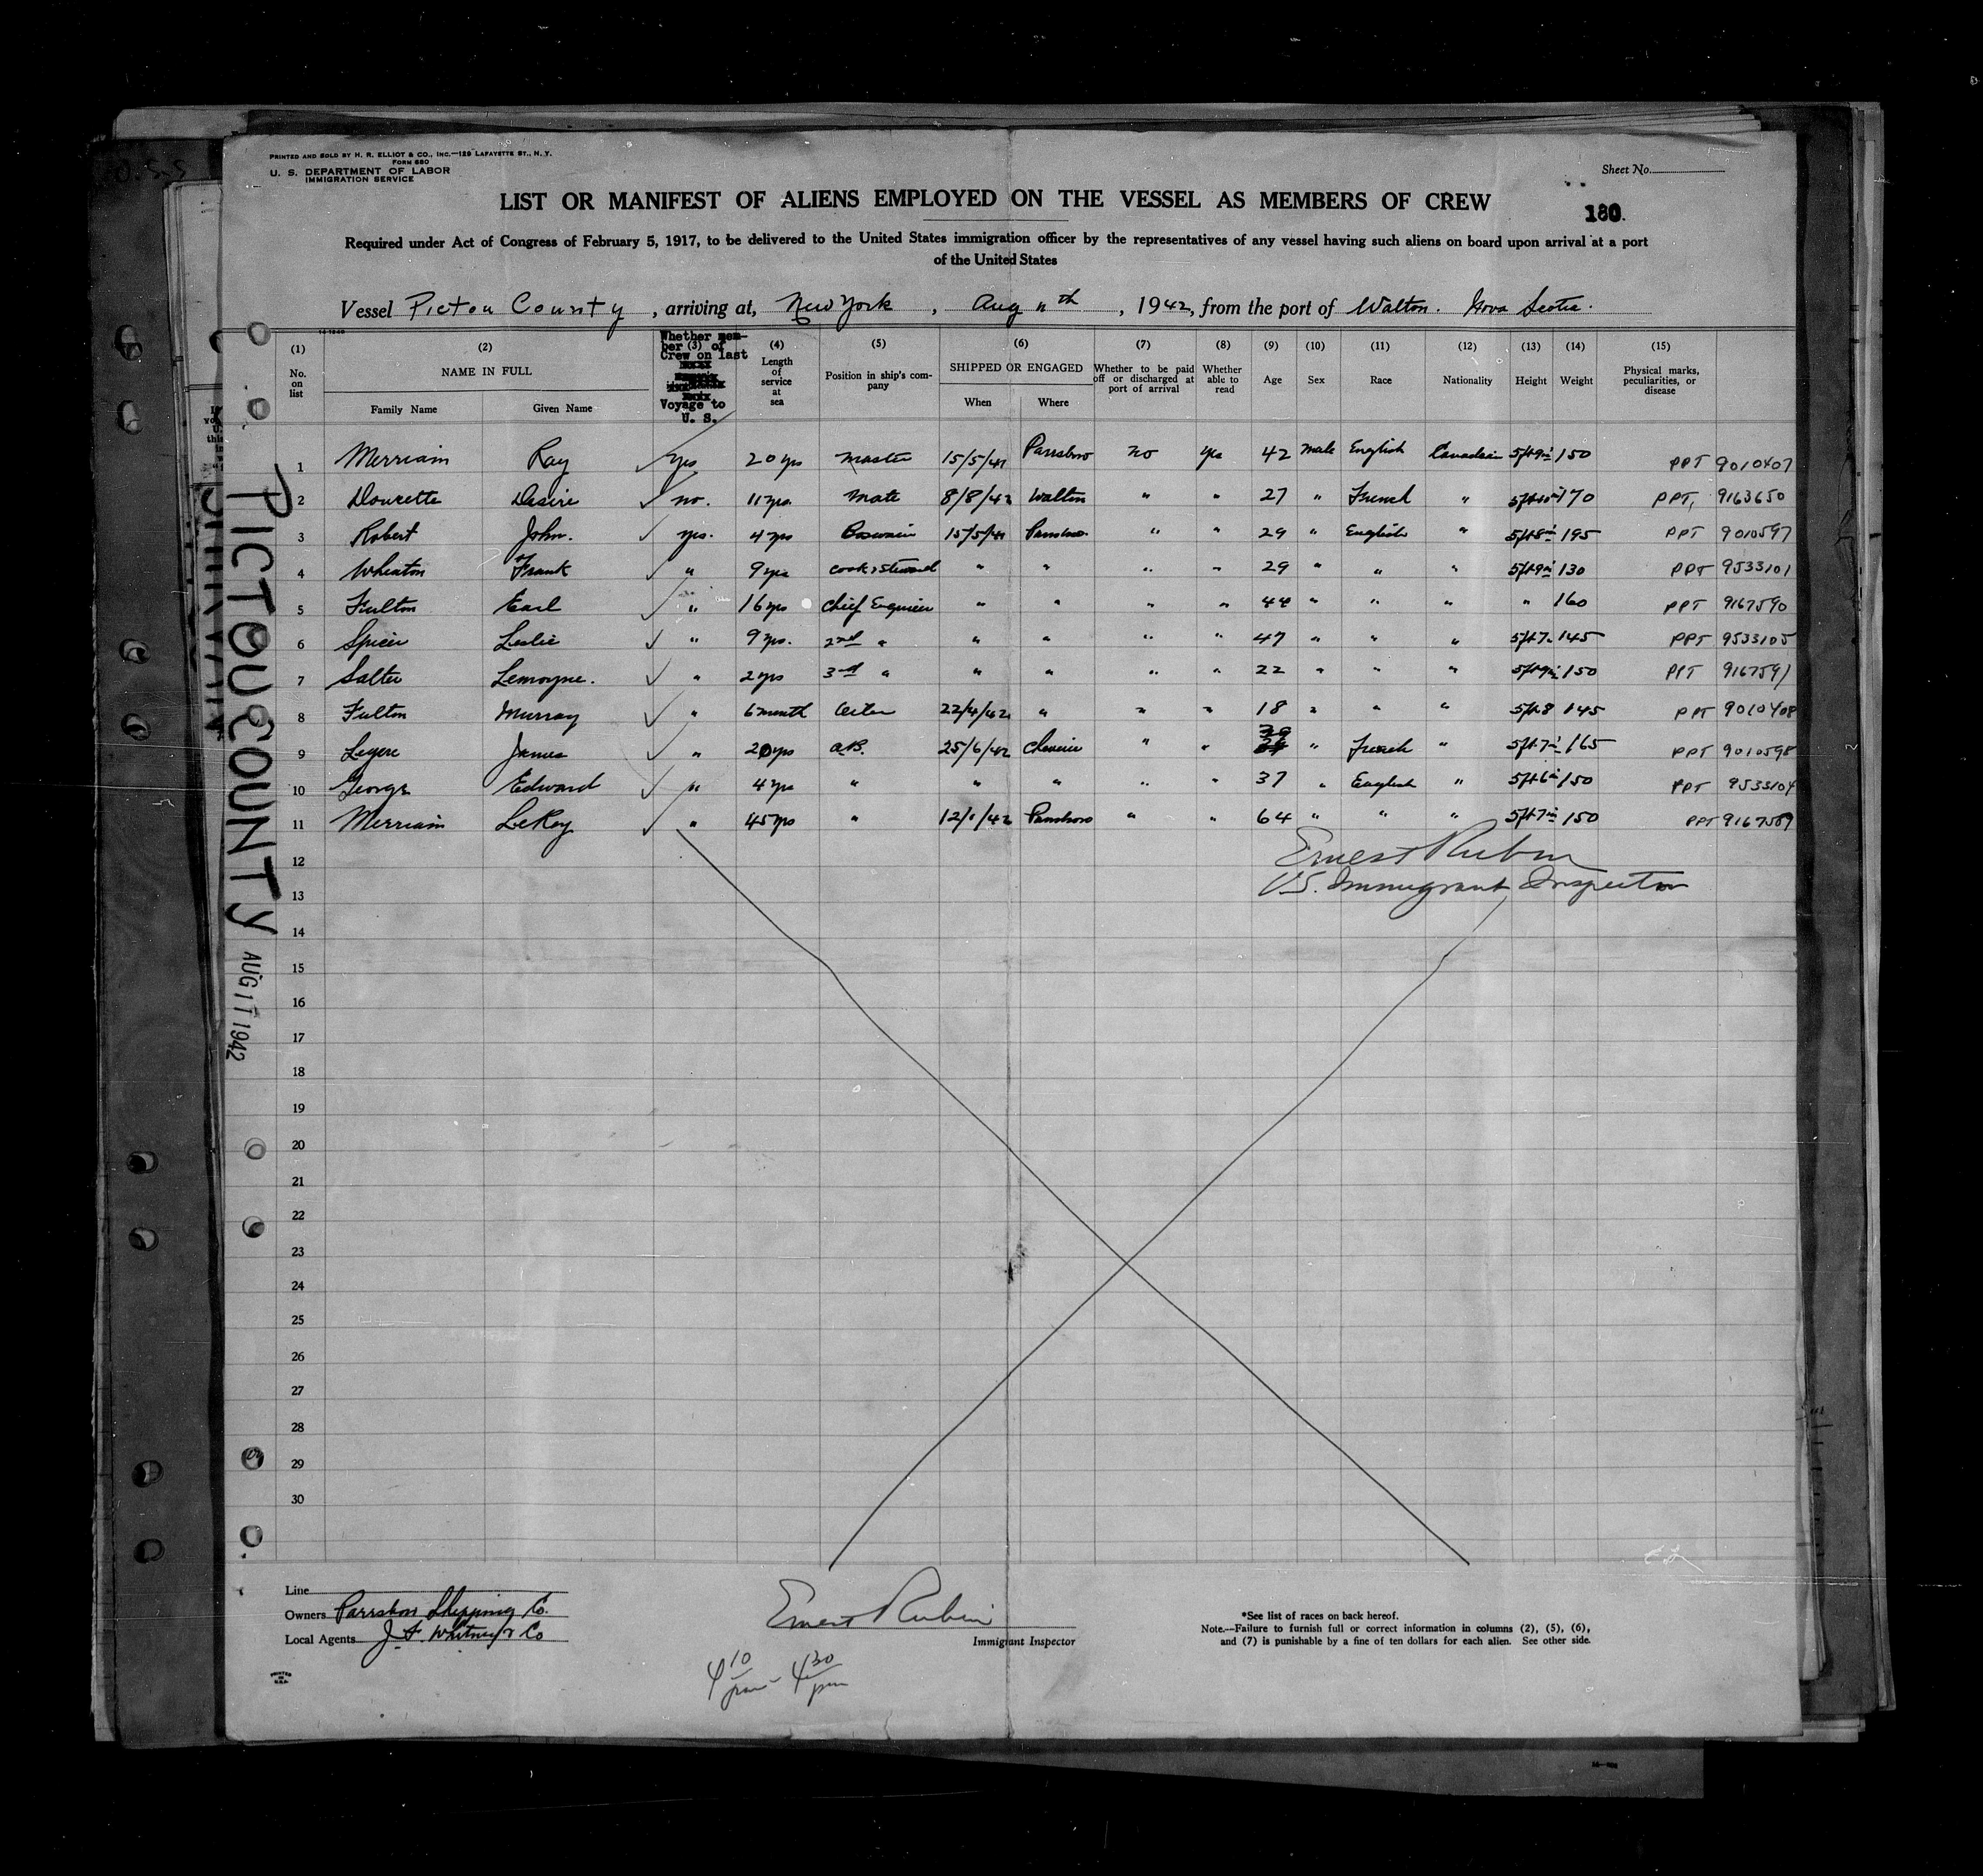 PRINTED AND SOLD BY H. R. ELLIOT & CO., INC.—129 LAFAYETTE ST., N. Y.
FORM 680
U. S. DEPARTMENT OF LABOR
IMMIGRATION SERVICE
Sheet No.
LIST OR MANIFEST OF ALIENS EMPLOYED ON THE VESSEL AS MEMBERS OF CREW
180.
Required under Act of Congress of February 5, 1917, to be delivered to the United States immigration officer by the representatives of any vessel having such aliens on board upon arrival at a port
of the United States
Vessel Pictou County, arriving at, New York, Aug 11th, 1942, from the port of Walton. Nova Scotia.
(1) No. on list (2) NAME IN FULL Family Name Given Name Whether member (3) of Crew on last Voyage to U. S. (4) Length of service at sea (5) Position in ship's company (6) SHIPPED OR ENGAGED When Where (7) Whether to be paid off or discharged at port of arrival (8) Whether able to read (9) Age (10) Sex (11) Race (12) Nationality (13) Height (14) Weight (15) Physical marks, peculiarities, or disease
1 Merriam Ray yes 20 yrs Master 15/5/41 Parrsboro no yes 42 male English Canadian 5ft 9in 150 PPT 9010407
2 Dourette Desire no. 11 yrs. Mate 8/8/42 Walton " " 27 " French " 5ft 10in 170 PPT, 9163650
3 Robert John. yes. 4 yrs Boswain 15/5/41 Parrsboro " " 29 " English " 5ft 8in 195 PPT 9010597
4 Wheaton Frank " 9 yrs cook & Steward " " " " 29 " " " 5ft 9in 130 PPT 9533101
5 Fulton Earl " 16 yrs Chief Engineer " " " " 44 " " " " 160 PPT 9167590
6 Spicer Leslie " 9 yrs. 2nd " " " " " 47 " " " 5ft 7. 145 PPT 9533105
7 Salter Lemoyne. " 2 yrs 3rd " " " " " 22 " " " 5ft 9in 150 PPT 9167591
8 Fulton Murray " 6 month Oiler 22/4/42 " " " 18 " " " 5ft 8 145 PPT 9010408
9 Legere James " 20 yrs A.B. 25/6/42 Cheverie " " 39 " French " 5ft 7in 165 PPT 9010598
10 George Edward " 4 yrs " " " " " 37 " English " 5ft 6in 150 PPT 9533104
11 Merriam LeRoy " 45 yrs " 12/1/42 Parrsboro " " 64 " " " 5ft 7in 150 PPT 9167589
Ernest Rubin
U.S. Immigrant Inspector
12
13
14
15
16
17
18
19
20
21
22
23
24
25
26
27
28
29
30
PICTOU COUNTY AUG 11 1942
Line
Owners Parrsboro Shipping Co.
Local Agents J. F. Whitney & Co
Ernest Rubin
Immigrant Inspector
4 10 pm - 4 30 pm
*See list of races on back hereof.
Note.—Failure to furnish full or correct information in columns (2), (5), (6),
and (7) is punishable by a fine of ten dollars for each alien. See other side.
PRINTED IN U.S.A.